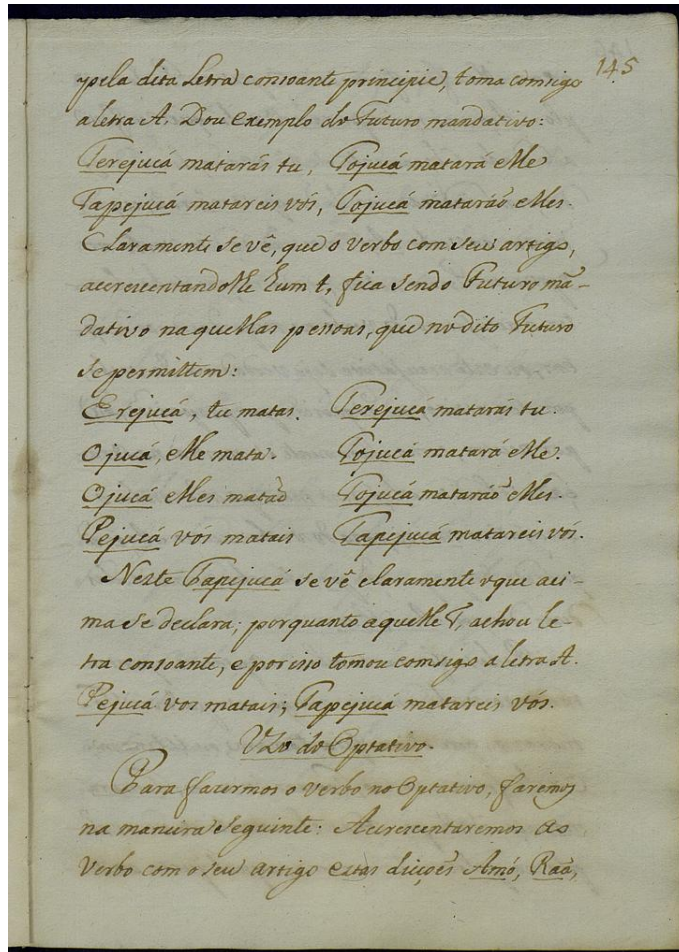 145
pela dita Letra consoante principie, toma comsigo
a letra A. Dou exemplo do Futuro mandativo:
Terejucá matarás tu, Tojucá matará elle
Tapejucá matareis vós, Tojucá mataráõ elles.
Claramente se vê, que o verbo com seu artigo,
accrescentandolhe hum t, fica sendo Futuro mã-
dativo naquellas pessoas, que no dito Futuro
se permittem:
Erejucá, tu matas. Terejucá matarás tu.
Ojucá, elle mata. Tojucá matará elle.
Ojucá elles mataõ Tojucá mataráõ elles.
Pejucá vós matais Tapejucá matareis vós.
Neste Tapejucá se vê claramente o que aci-
ma se declara; porquanto aquelle T, achou le-
tra consoante, e por isso tomou comsigo a letra A.
Pejucá vos matais; Tapejucá matareis vós.
Uzo do Optativo.
Para fazermos o verbo no Optativo, faremos
na maneira seguinte: Accrescentaremos ao
verbo com o seu artigo estas dicções Amó, Raã,